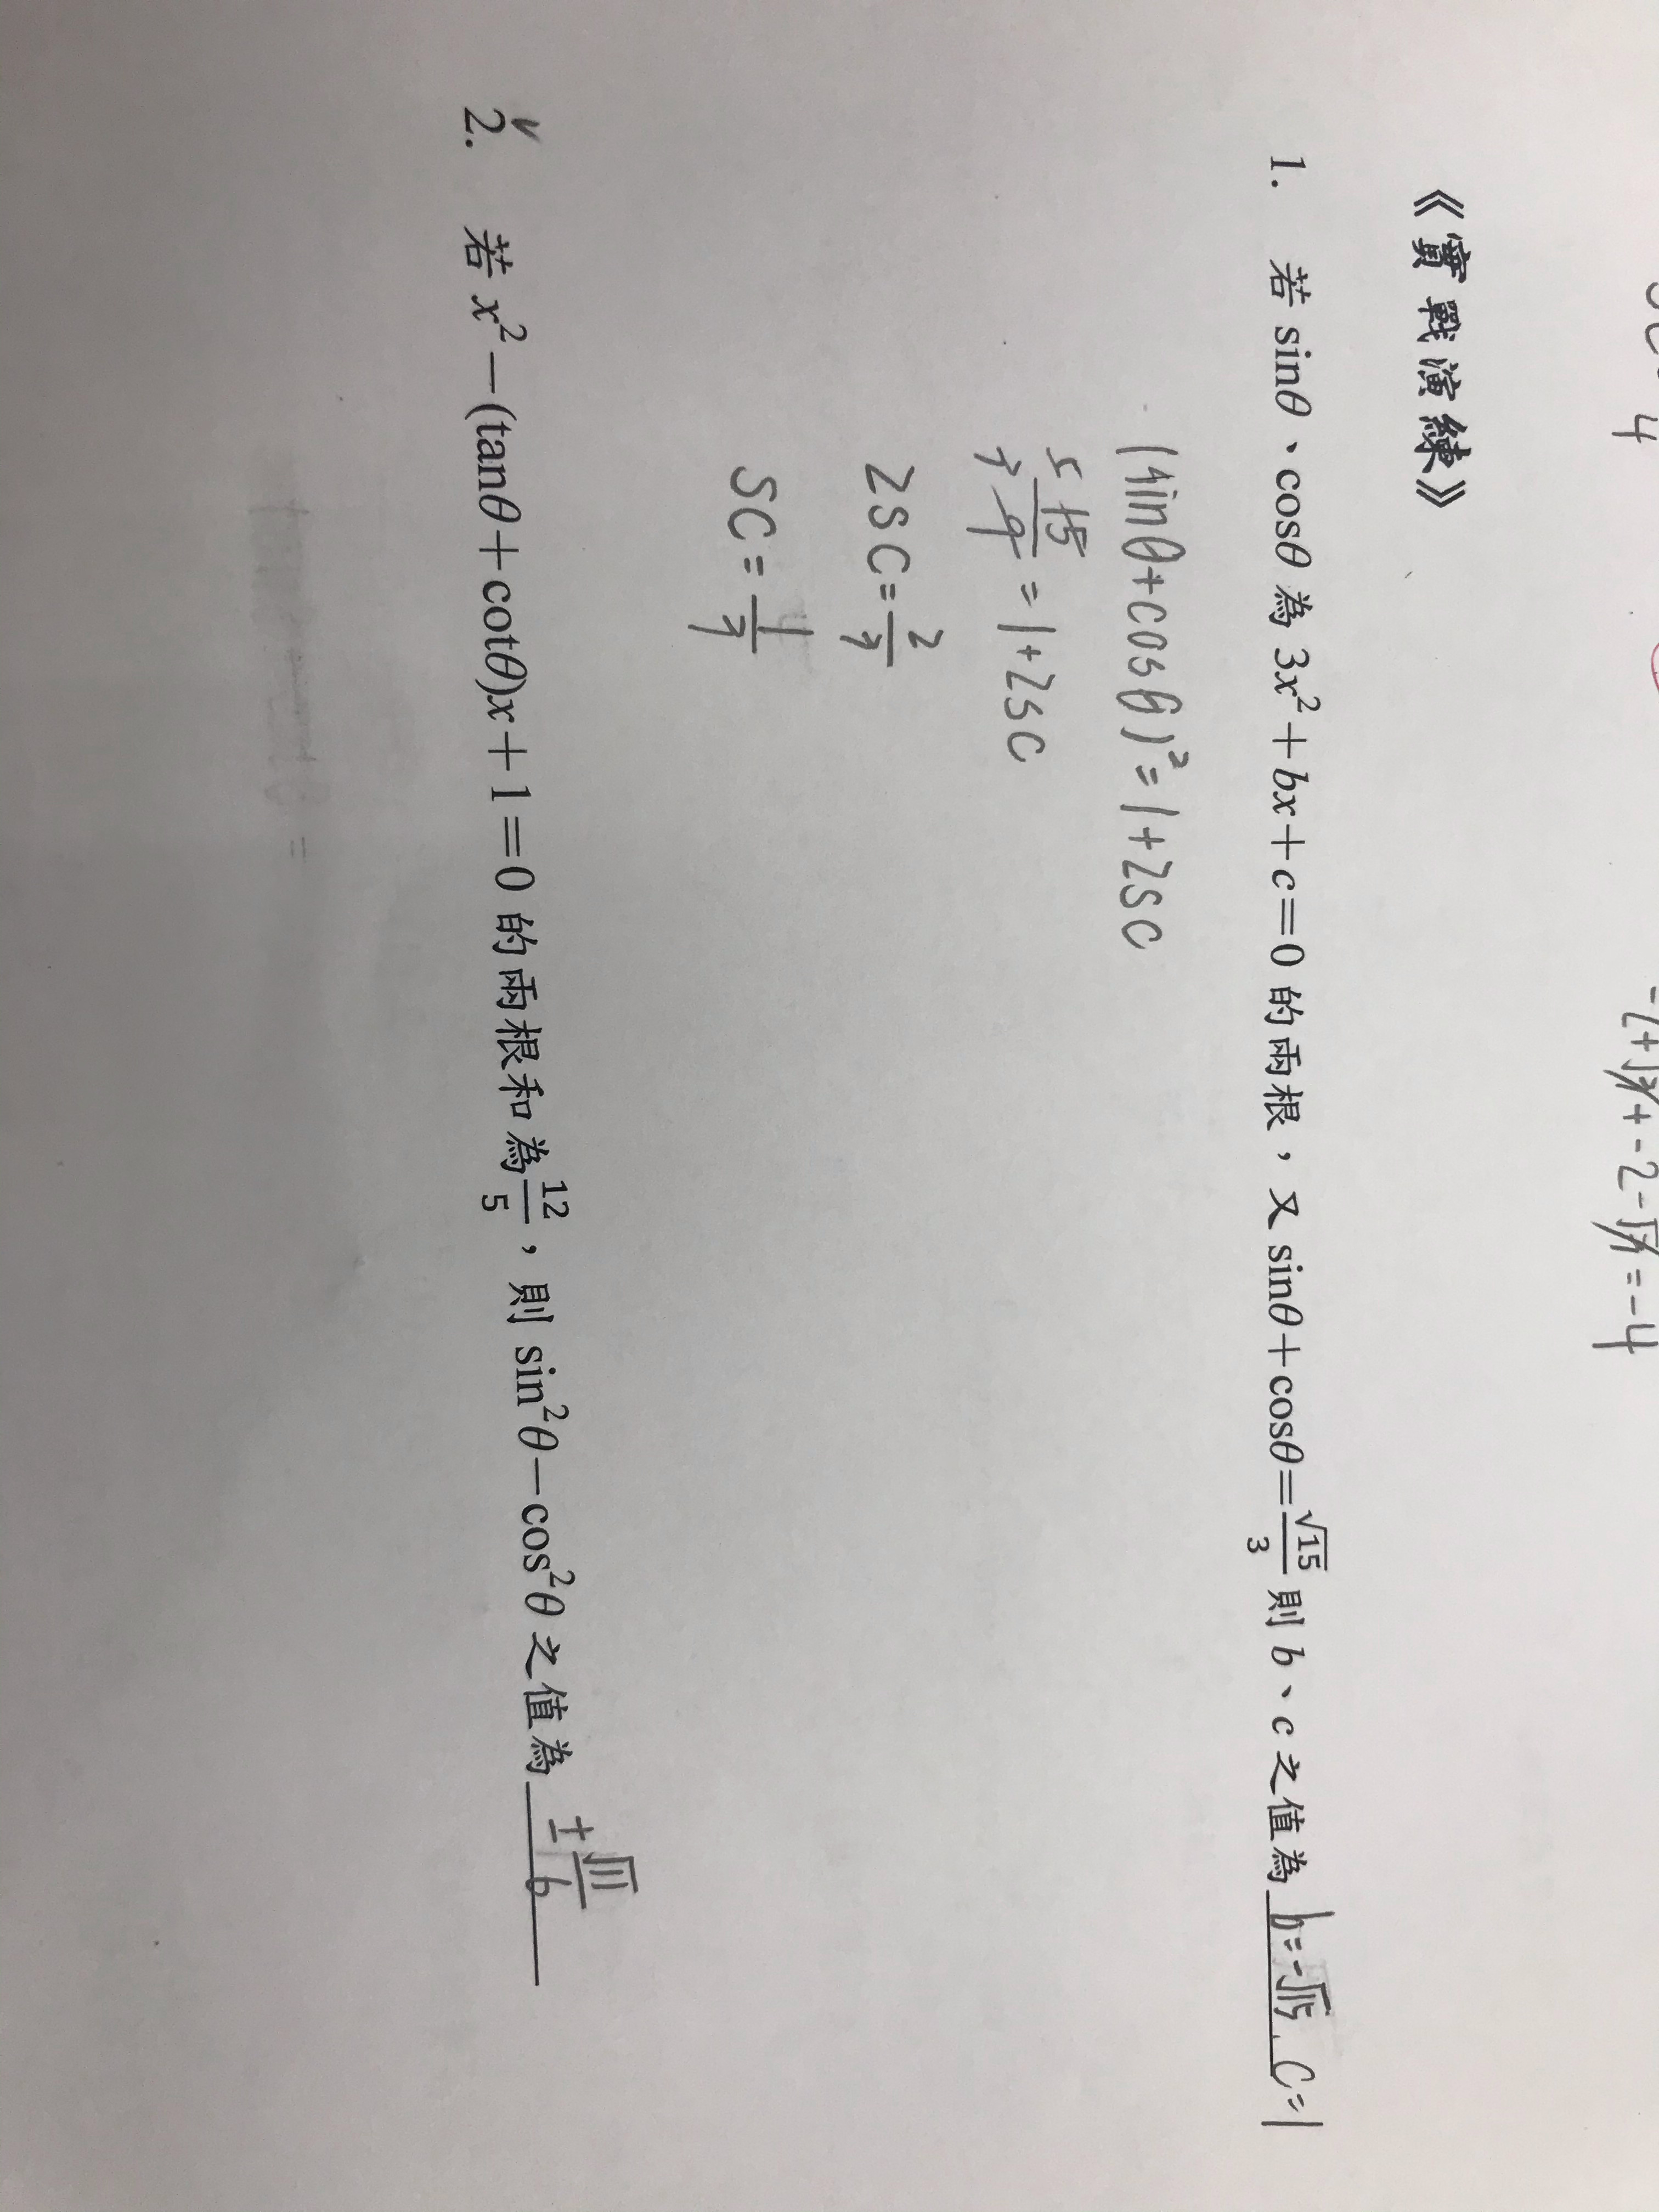 -2+√3+-2-√3=-4
《實戰演練》
1. 若 sinθ、cosθ 為 3x²+bx+c=0 的兩根，又 sinθ+cosθ=√15/3 則 b、c 之值為 b=-√15, c=1
(sinθ+cosθ)²=1+2SC
5 15
3 9 =1+2SC
2SC=2/3
SC=1/3
✓
2. 若 x²-(tanθ+cotθ)x+1=0 的兩根和為 12/5，則 sin²θ-cos²θ 之值為 ±√11/6